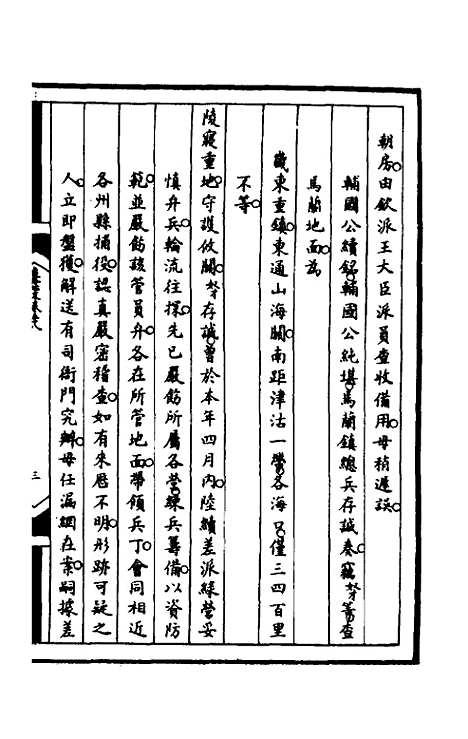 朝房由欽派王大臣派員查收備用毋稍遲誤
輔國公續銘輔國公純堪馬蘭鎮總兵存誠奏竊奴才等查
馬蘭地面為
畿東重鎮東通山海關南距津沽一帶各海口僅三四百里
不等
陵寢重地守護攸關奴才存誠曾於本年四月內陸續差派綠營妥
慎弁兵輪流往探先已嚴飭所屬各營練兵籌備以資防
範並嚴飭該管員弁各在所管地面帶領兵丁會同相近
各州縣捕役認真嚴密稽查如有來歷不明形跡可疑之
人立即盤獲解送有司衙門究辦毋任漏網在案嗣據差
三